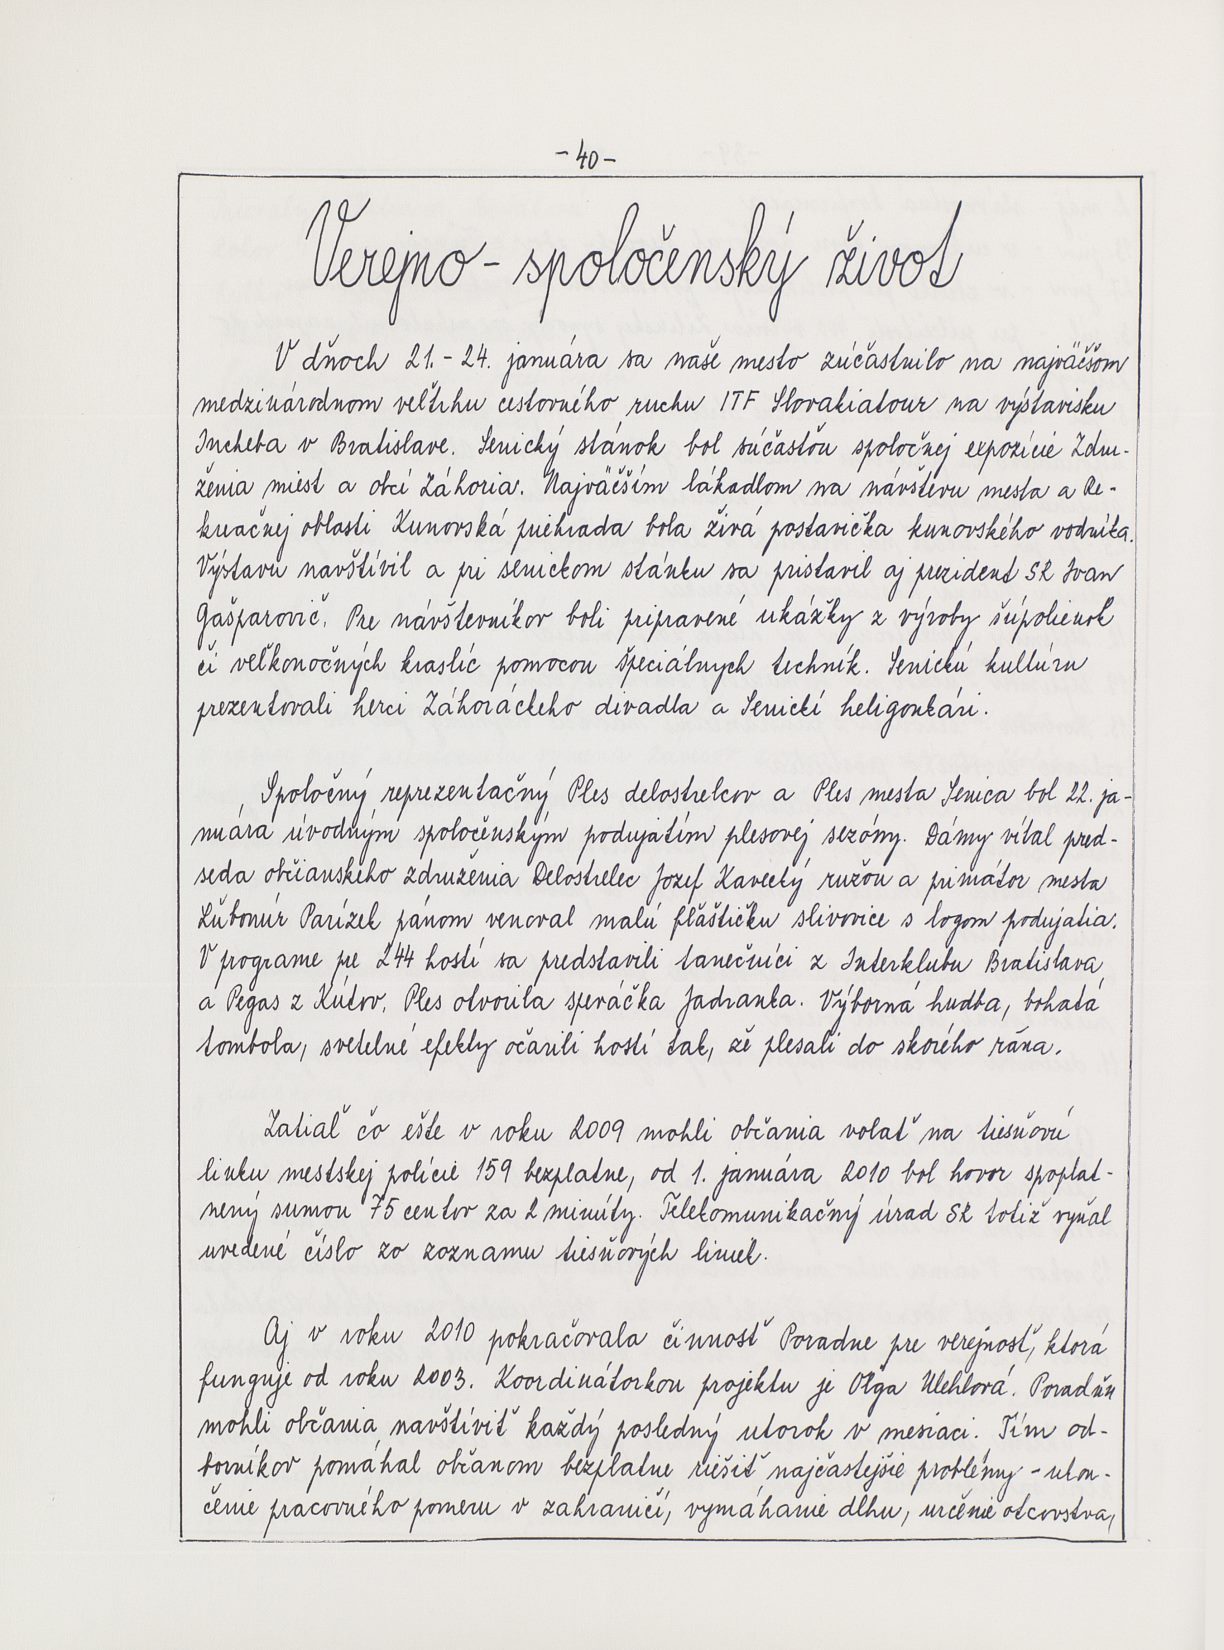 -40-
Verejno-spoločenský život
V dňoch 21.-24. januára sa naše mesto zúčastnilo na najväčšom
medzinárodnom veľtrhu cestovného ruchu ITF Slovakiatour na výstavisku
Incheba v Bratislave. Senický stánok bol súčasťou spoločnej expozície Zdru-
ženia miest a obcí Záhoria. Najväčším lákadlom na návštevu mesta a Re-
kreačnej oblasti Kunovská priehrada bola živá postavička kunovského vodníka.
Výstavu navštívil a pri senickom stánku sa pristavil aj prezident SR Ivan
Gašparovič. Pre návštevníkov boli pripravené ukážky z výroby šúpolienok
či veľkonočných kraslíc pomocou špeciálnych techník. Senickú kultúru
prezentovali herci Záhoráckeho divadla a Senickí heligonkári.
Spoločný reprezentačný Ples delostrelcov a Ples mesta Senica bol 22. ja-
nuára úvodným spoločenským podujatím plesovej sezóny. Dámy vítal pred-
seda občianskeho združenia Delostrelec Jozef Kavecký ružou a primátor mesta
Ľubomír Parízek pánom venoval malú fľaštičku slivovice s logom podujatia.
V programe pre 244 hostí sa predstavili tanečníci z Interklubu Bratislava
a Pegas z Kútov. Ples otvorila speváčka Jadranka. Výborná hudba, bohatá
tombola, svetelné efekty očarili hostí tak, že plesali do skorého rána.
Zatiaľ čo ešte v roku 2009 mohli občania volať na tiesňovú
linku mestskej polície 159 bezplatne, od 1. januára 2010 bol hovor spoplat-
nený sumou 75 centov za 2 minúty. Telekomunikačný úrad SR totiž vyňal
uvedené číslo zo zoznamu tiesňových liniek.
Aj v roku 2010 pokračovala činnosť Poradne pre verejnosť, ktorá
funguje od roku 2003. Koordinátorkou projektu je Oľga Uhlorá. Poradňu
mohli občania navštíviť každý posledný utorok v mesiaci. Tím od-
borníkov pomáhal občanom bezplatne riešiť najčastejšie problémy - ukon-
čenie pracovného pomeru v zahraničí, vymáhanie dlhu, určenie otcovstva,